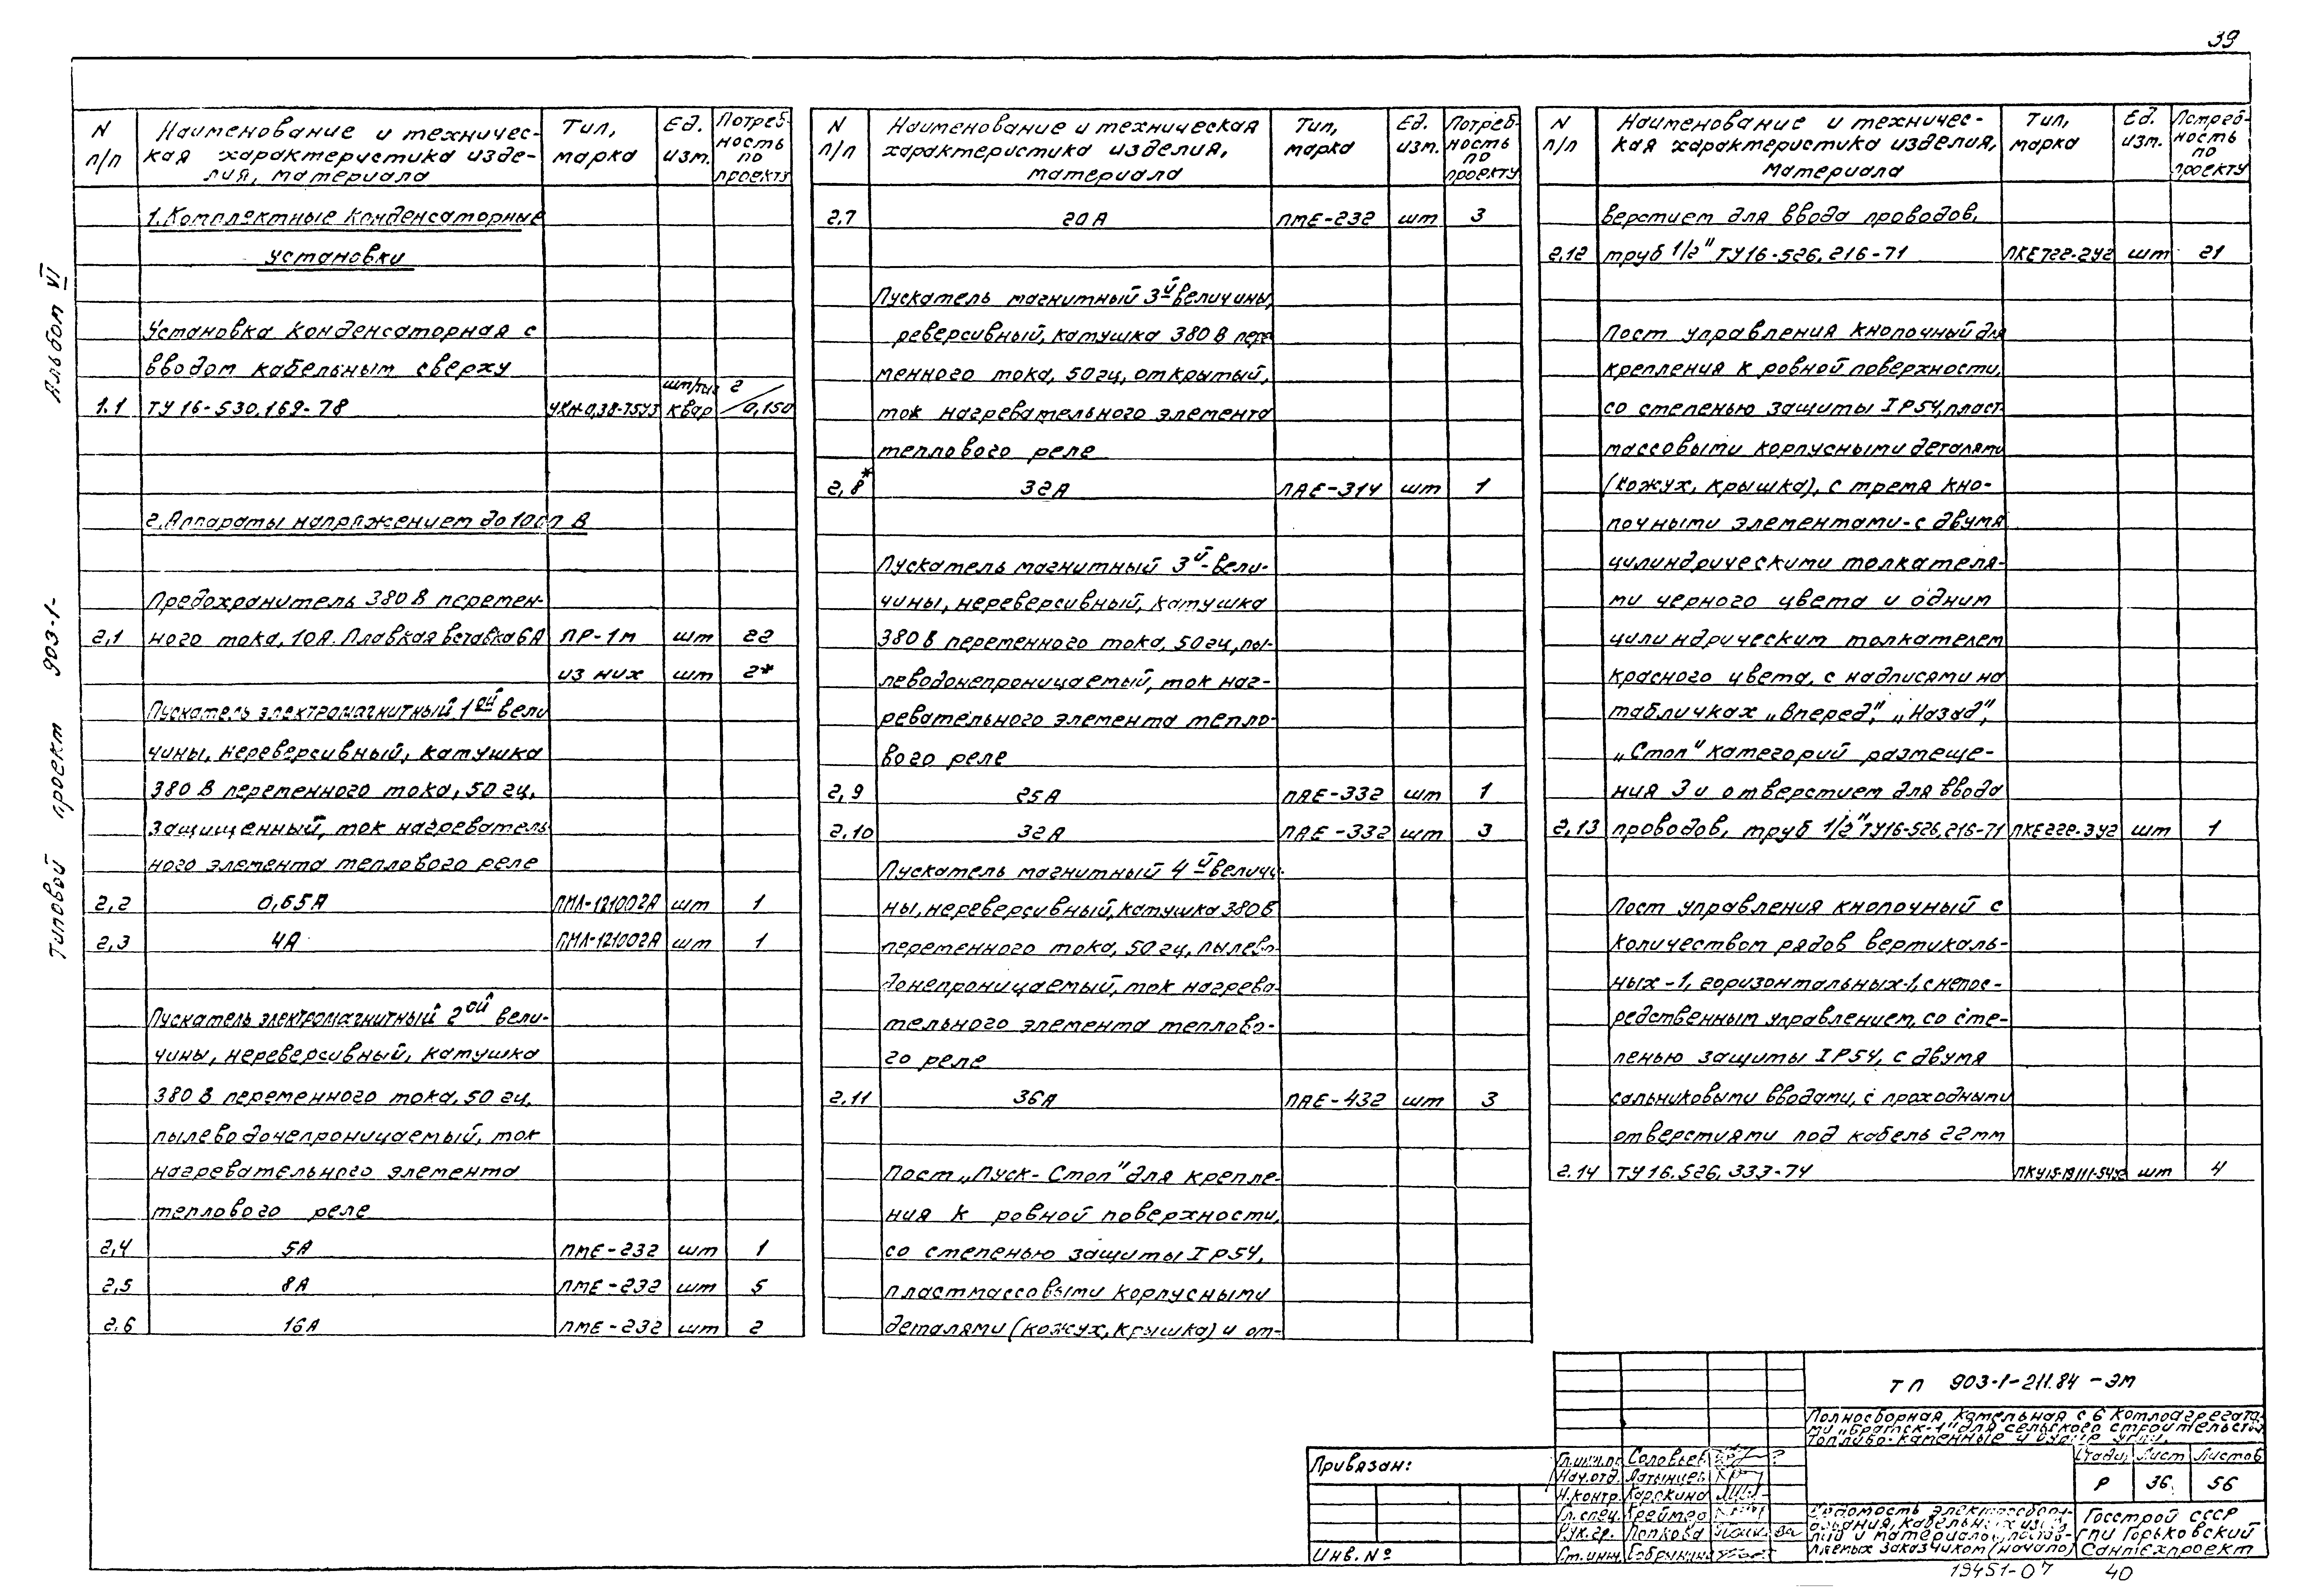 39
Альбом VI
Типовой проект 903-1-
N п/п
Наименование и техничес-
кая характеристика изде-
лия, материала
Тип, марка
Ед. изм.
Потреб-
ность
по
проекту
1. Комплектные конденсаторные
установки
Установка конденсаторная с
вводом кабельным сверху
1.1 ТУ 16-530.169-78 УКН-0,38-75У3 шт/тыс квар 2/0,150
2. Аппараты напряжением до 1000 В
Предохранитель 380 В перемен-
2,1 ного тока, 10А. Плавкая вставка 6А ПР-1м шт 22
из них шт 2*
Пускатель электромагнитный 1ой вели
чины, нереверсивный, катушка
380 В переменного тока, 50 гц,
защищенный, ток нагреватель
ного элемента теплового реле
2,2 0,65А ПМЛ-121002А шт 1
2,3 4А ПМЛ-121002А шт 1
Пускатель электромагнитный 2ой вели-
чины, нереверсивный, катушка
380 В переменного тока, 50 гц,
пылеводонепроницаемый, ток
нагревательного элемента
теплового реле
2,4 5А ПМЕ-232 шт 1
2,5 8А ПМЕ-232 шт 5
2.6 16А ПМЕ-232 шт 2
N п/п
Наименование и техническая
характеристика изделия,
материала
Тип, марка
Ед. изм.
Потреб-
ность
по
проекту
2,7 20А ПМЕ-232 шт 3
Пускатель магнитный 3й величины,
реверсивный, катушка 380 В пере
менного тока, 50 гц, открытый,
ток нагревательного элемента
теплового реле
2,8* 32А ПАЕ-314 шт 1
Пускатель магнитный 3й-вели-
чины, нереверсивный, катушка
380 В переменного тока, 50 гц, пы-
леводонепроницаемый, ток наг-
ревательного элемента тепло-
вого реле
2,9 25А ПАЕ-332 шт 1
2.10 32А ПАЕ-332 шт 3
Пускатель магнитный 4й величи-
ны, нереверсивный, катушка 380 В
переменного тока, 50 гц, пылево-
донепроницаемый, ток нагрева-
тельного элемента теплово-
го реле
2.11 36А ПАЕ-432 шт 3
Пост „Пуск-Стоп" для крепле-
ния к ровной поверхности,
со степенью защиты IP54,
пластмассовыми корпусными
деталями (кожух, крышка) и от-
N п/п
Наименование и техничес-
кая характеристика изделия,
материала
Тип, марка
Ед. изм.
Потреб-
ность
по
проекту
верстием для ввода проводов,
2,12 труб 1/2" ТУ16-526,216-71 ПКЕ722-2У2 шт 21
Пост управления кнопочный для
крепления к ровной поверхности,
со степенью защиты IP54, пласт-
массовыми корпусными деталями
(кожух, крышка), с тремя кно-
почными элементами-с двумя
цилиндрическими толкателя-
ми черного цвета и одним
цилиндрическим толкателем
красного цвета, с надписями на
табличках „Вперед", „Назад",
„Стоп" категорий размеще-
ния 3 и отверстием для ввода
2,13 проводов, труб 1/2" ТУ16-526,216-71 ПКЕ222-3У2 шт 1
Пост управления кнопочный с
количеством рядов вертикаль-
ных-1, горизонтальных-1, с непос-
редственным управлением, со сте-
пенью защиты IP54, с двумя
сальниковыми вводами, с проходными
отверстиями под кабель 22мм
2.14 ТУ 16.526,333-74 ПКУ15-19111-54У2 шт 4
ТП 903-1-211.84 -ЭМ
Полносборная котельная с 6 котлоагрегата-
ми „Братск-1" для сельского строительства
Топливо-каменные и бурые угли.
Привязан:
Инв. №
Гл.инж.пр. Соловьев
Нач.отд. Латынцев
Н.контр. Карокина
Гл.спец. Креймер
Рук.гр. Попкова
Ст.инж.
Стадия Лист Листов
Р 36 56
Ведомость электрообору-
дования, кабельных изде-
лий и материалов, постав-
ляемых заказчиком (начало)
Госстрой СССР
ГПИ Горьковский
Сантехпроект
19451-07 40